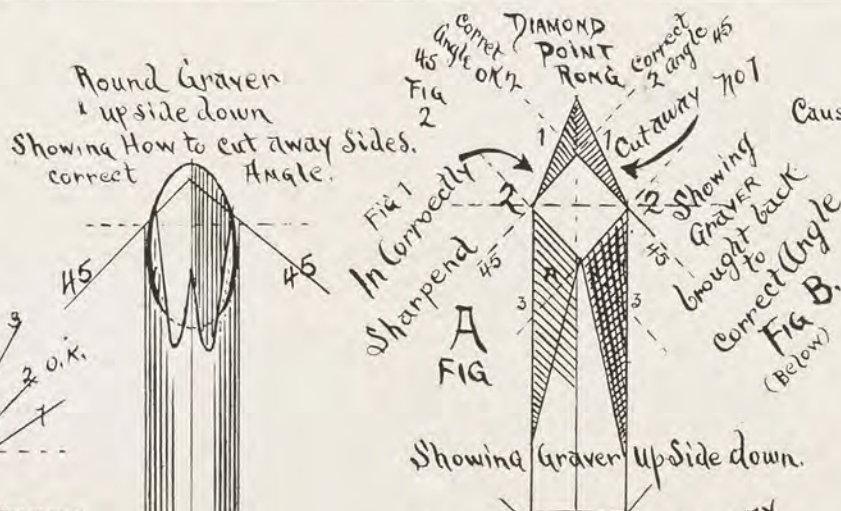 Round Graver
up side down
Showing How to cut away Sides.
correct ANGLE.
45
45
3
2 O.K.
1
DIAMOND
POINT
RONG
Correct
Angle OK 2
45
FIG
2
Correct
2 angle 45
Cut away no 1
1
1
Caus
Fig 1
In Correctly
Sharpend
45
2
2
Showing
GRAVER
brought back
to
Correct Angle
FIG B.
(Below)
45
3
3
A
FIG
Showing Graver Up Side down.